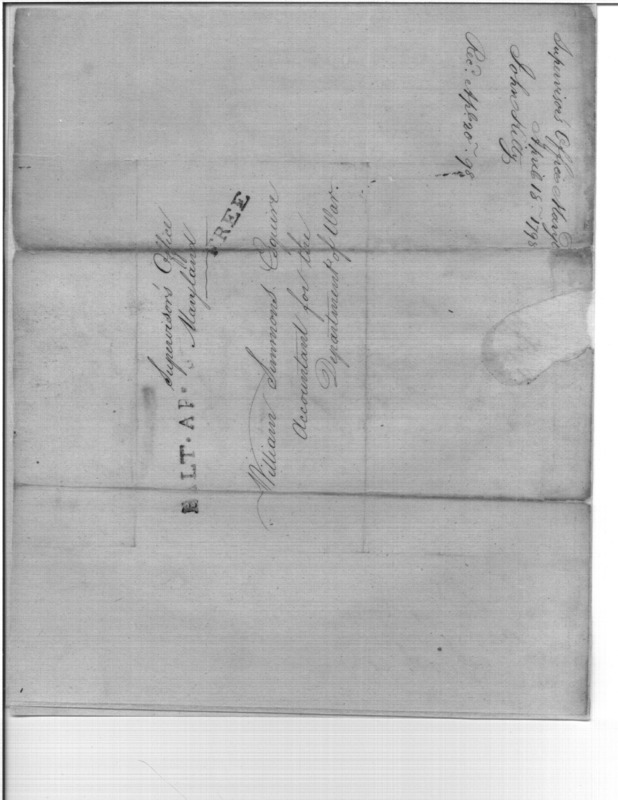 Supervisor's Office Maryld
April 15th 1798
John Kilty
Recd. Apl. 20th. 98
Supervisor's Office
Maryland
FREE
BALT. AP.
William Simmons Esquire
Accountant for the
Department of War.